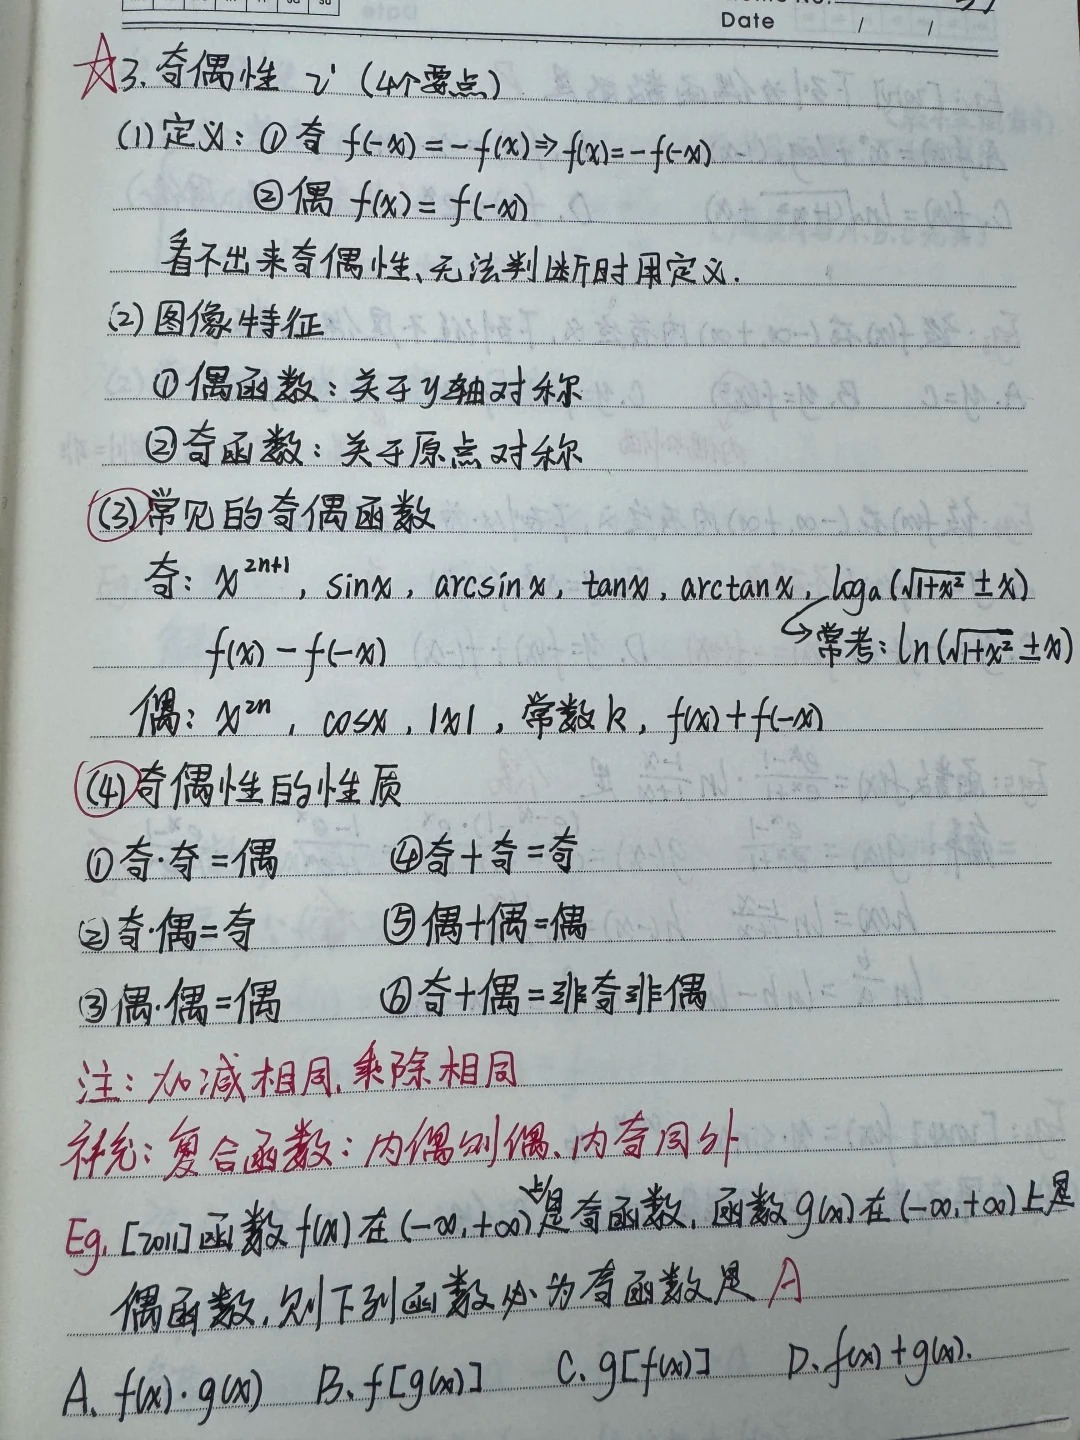 Date / /
☆3. 奇偶性 (4个要点)
(1) 定义: ① 奇 f(-x) = -f(x) ⇒ f(x) = -f(-x)
② 偶 f(x) = f(-x)
看不出来奇偶性、无法判断时用定义.
(2) 图像特征
① 偶函数: 关于y轴对称
② 奇函数: 关于原点对称
(3) 常见的奇偶函数
奇: x^{2n+1}, sinx, arcsinx, tanx, arctanx, loga(√(1+x²) ± x)
f(x) - f(-x) ↪常考: ln(√(1+x²) ± x)
偶: x^{2n}, cosx, |x|, 常数k, f(x)+f(-x)
(4) 奇偶性的性质
① 奇·奇=偶 ④ 奇+奇=奇
② 奇·偶=奇 ⑤ 偶+偶=偶
③ 偶·偶=偶 ⑥ 奇+偶=非奇非偶
注: 加减相同, 乘除相同
补充: 复合函数: 内偶则偶、内奇同外
Eg. [2011] 函数f(x)在(-∞,+∞)上是奇函数, 函数g(x)在(-∞,+∞)上是
偶函数, 则下列函数必为奇函数是 A
A. f(x)·g(x) B. f[g(x)] C. g[f(x)] D. f(x)+g(x).